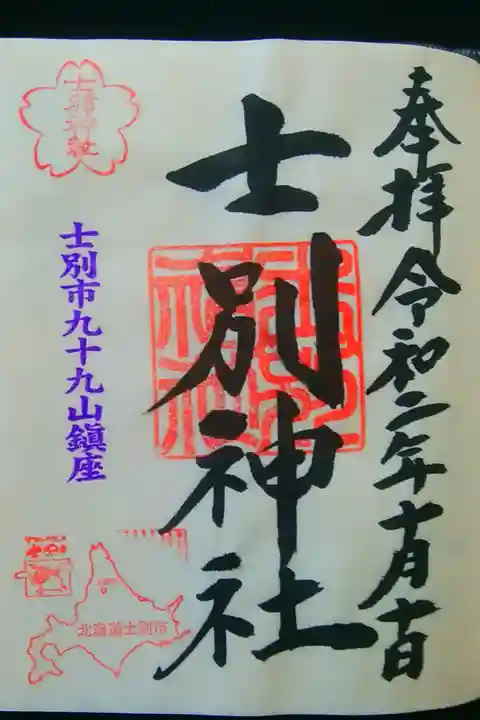 奉拝令和二年十月十日
士別神社
士別神社
士別市九十九山鎮座
北海道士別市